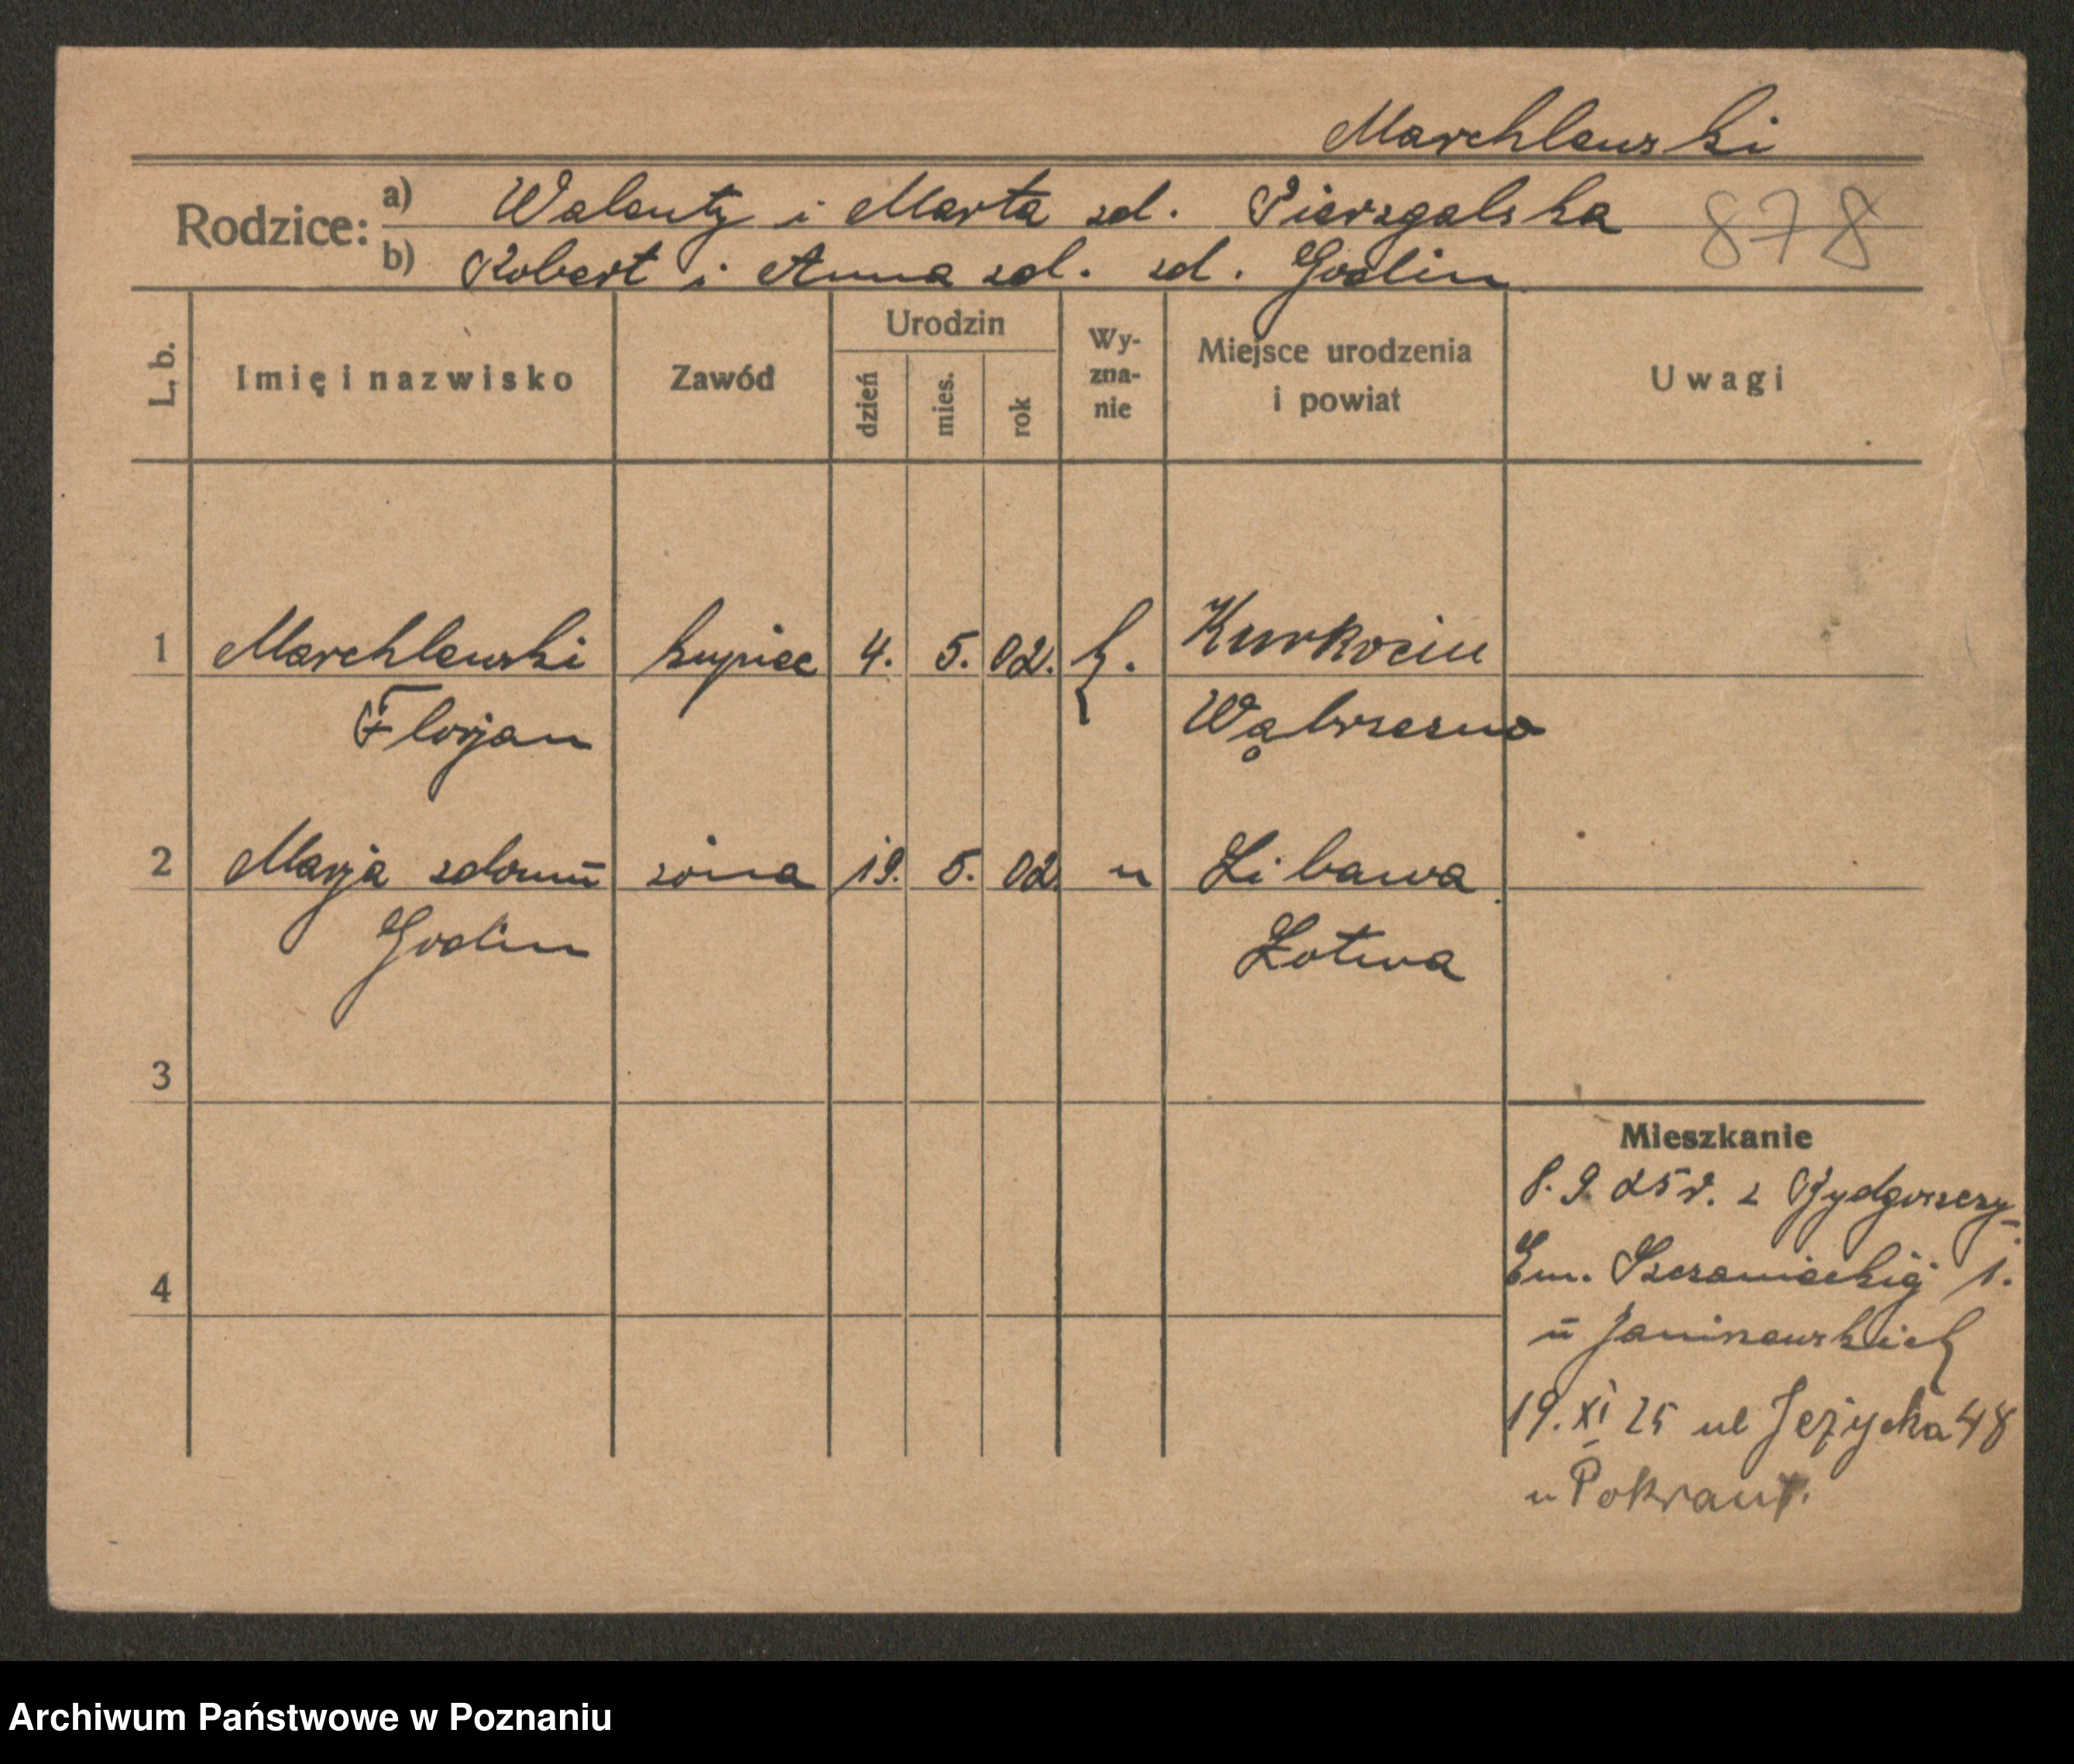 Marchlewski
Rodzice: a) Walenty i Marta zd. Pierzgalska 878
b) Robert i Anna zd. zd. Godlin
L. b. Imię i nazwisko Zawód Urodzin dzień mies. rok Wy-zna-nie Miejsce urodzenia i powiat Uwagi
1 Marchlewski kupiec 4. 5. 02. k. Kurkocin
Florjan Wąbrzezno
2 Marja zdomu żona 19. 5. 02. " Libawa
Godlin Łotwa
3
Mieszkanie
8. 9. 25 r. z Bydgoszczy
4 Em. Sczanieckiej 1.
u Janiszewskich
19. XI 25 ul Jeżycka 48
u Pokrant.
Archiwum Państwowe w Poznaniu